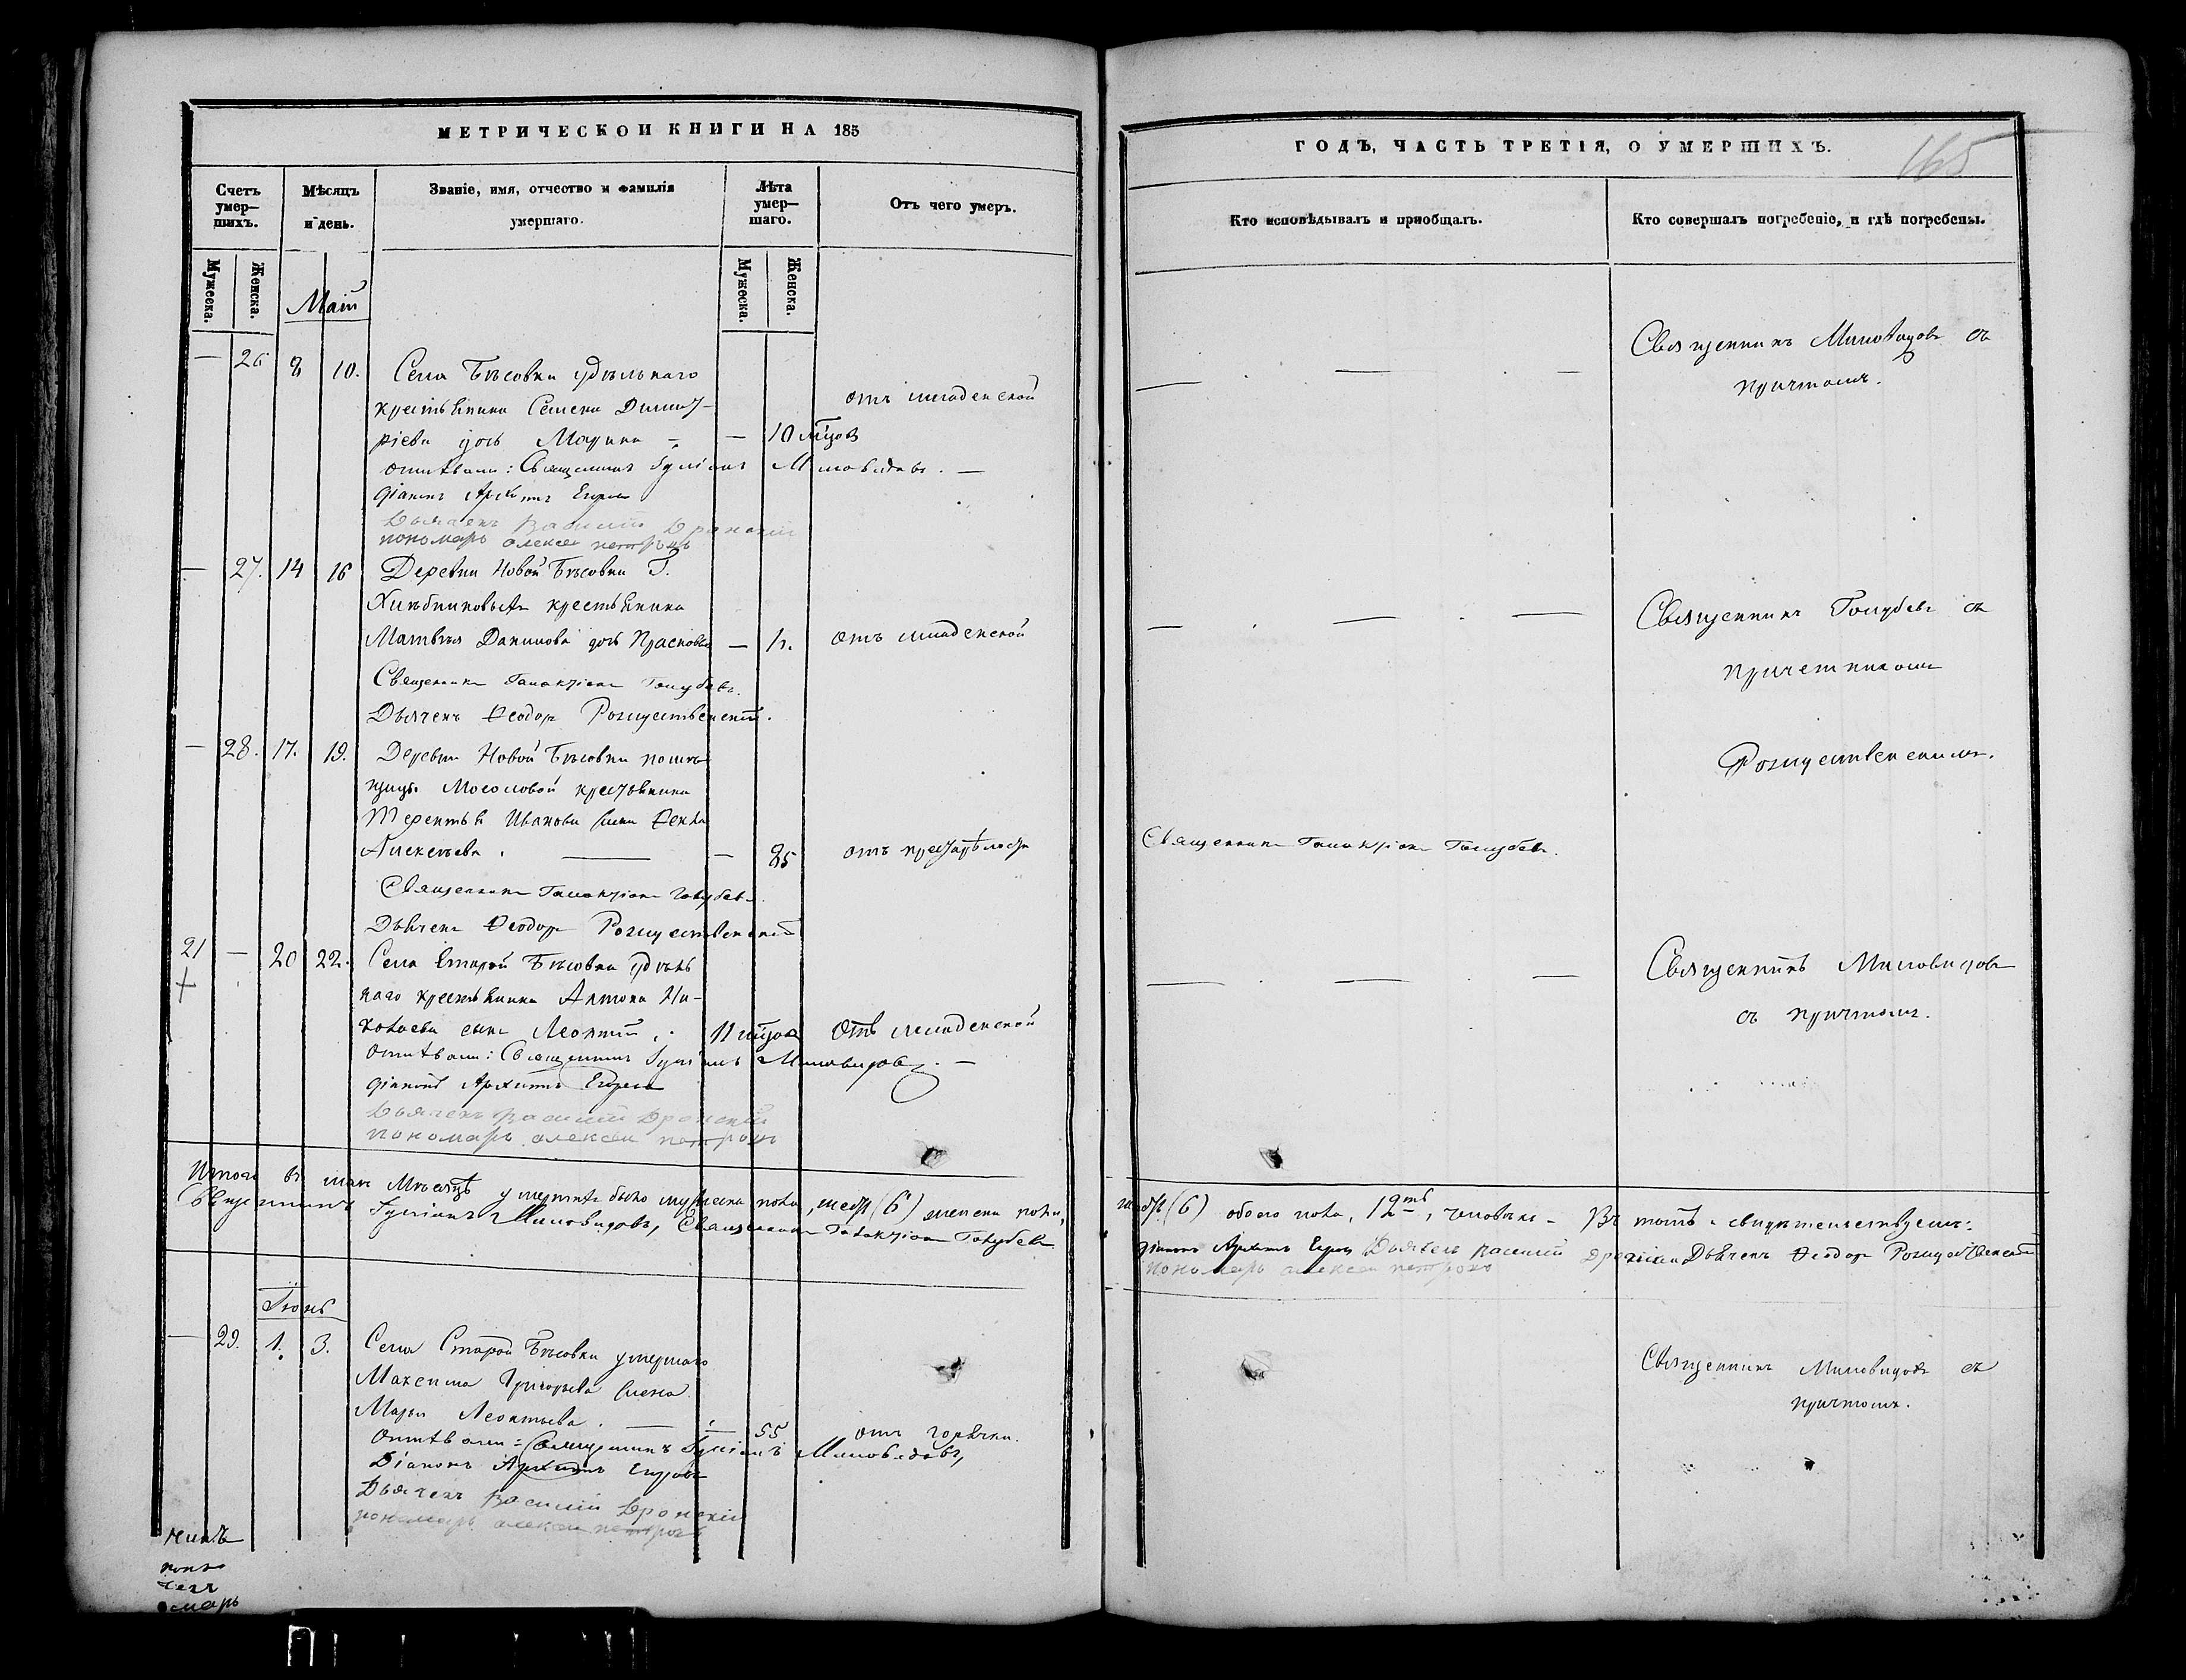 МЕТРИЧЕСКОЙ КНИГИ НА 185
Счетъ умер—шихъ.
Мѣсяцъ и день.
Званіе, имя, отчество и фамилія умершаго.
Лѣта умер—шаго.
Отъ чего умеръ.
Мужеска. Женска.
Мужеска. Женска.
Маій
— 26 8 10. Села Бѣсовки удѣльнаго
крестьянина Семена Димит-
ріева дочь Марина — 10 м҃цовъ отъ младенской
отпѣвали: Священникъ Іуліанъ Миловидовъ. —
діаконъ Архипъ Егоров
Дьячекъ Василій Дронскій
пономарь алексеи петровъ
— 27. 14 16 Деревни Новой Бѣсовки Г.
Хлѣбниковыхъ крестьянина
Матвѣя Данилова дочь Прасковья — отъ младенской
Священникъ Галактіонъ Голубевъ.
Дьячекъ Ѳеодоръ Рождественскій.
— 28. 17. 19. Деревни Новой Бѣсовки помѣ
щицы Мосоловой крестьянина
Терентья Иванова жена Ѳекла
Алексѣева. — 85 отъ престарѣлости
Священникъ Галактіонъ Голубевъ.
Дьячекъ Ѳеодоръ Рождественскій
21 — 20 22. Села Старой Бѣсовки удѣль
наго крестьянина Антона Ни-
колаева сынъ Леонтій. 11 м҃цовъ Отъ младенской
отпѣвали: Священникъ Іуліанъ Миловидовъ. —
діаконъ Архипъ Егоровъ
Дьячекъ Василий Дронский
пономарь алексеи петровъ
Итого въ маѣ Мѣсяцѣ умершихъ было мужеска пола, шесть (6) женска пола,
Священникъ Іуліанъ Миловидовъ, Священникъ Галактіонъ Голубевъ
Іюнь
— 29. 1. 3. Села Старой Бѣсовки умершаго
Максима Григорьева жена
Марья Леонтьева. — 55 отъ горячки.
Отпѣвали: Священникъ Іуліанъ Миловидовъ,
Діаконъ Архипъ Егоровъ
Дьячекъ Василій Дронскій
пономарь алексеи петровъ
ГОДЪ, ЧАСТЬ ТРЕТІЯ, О УМЕРШИХЪ.
165
Кто исповѣдывалъ и пріобщалъ.
Кто совершалъ погребеніе, и гдѣ погребены.
Священникъ Миловидовъ съ
причтомъ.
Священникъ Голубевъ съ
причетникомъ
Рождественскимъ.
Священникъ Галактіонъ Голубевъ.
Священникъ Миловидовъ
съ причтомъ.
шесть (6) обоего пола, 12ть, человѣкъ — Въ томъ и свидѣтельствуемъ:
діаконъ Архипъ Егоров Дьячекъ василий Дронскій Дьячекъ Ѳеодоръ Рождественскій
пономарь алексеи петровъ
Священникъ Миловидовъ съ
причтомъ.